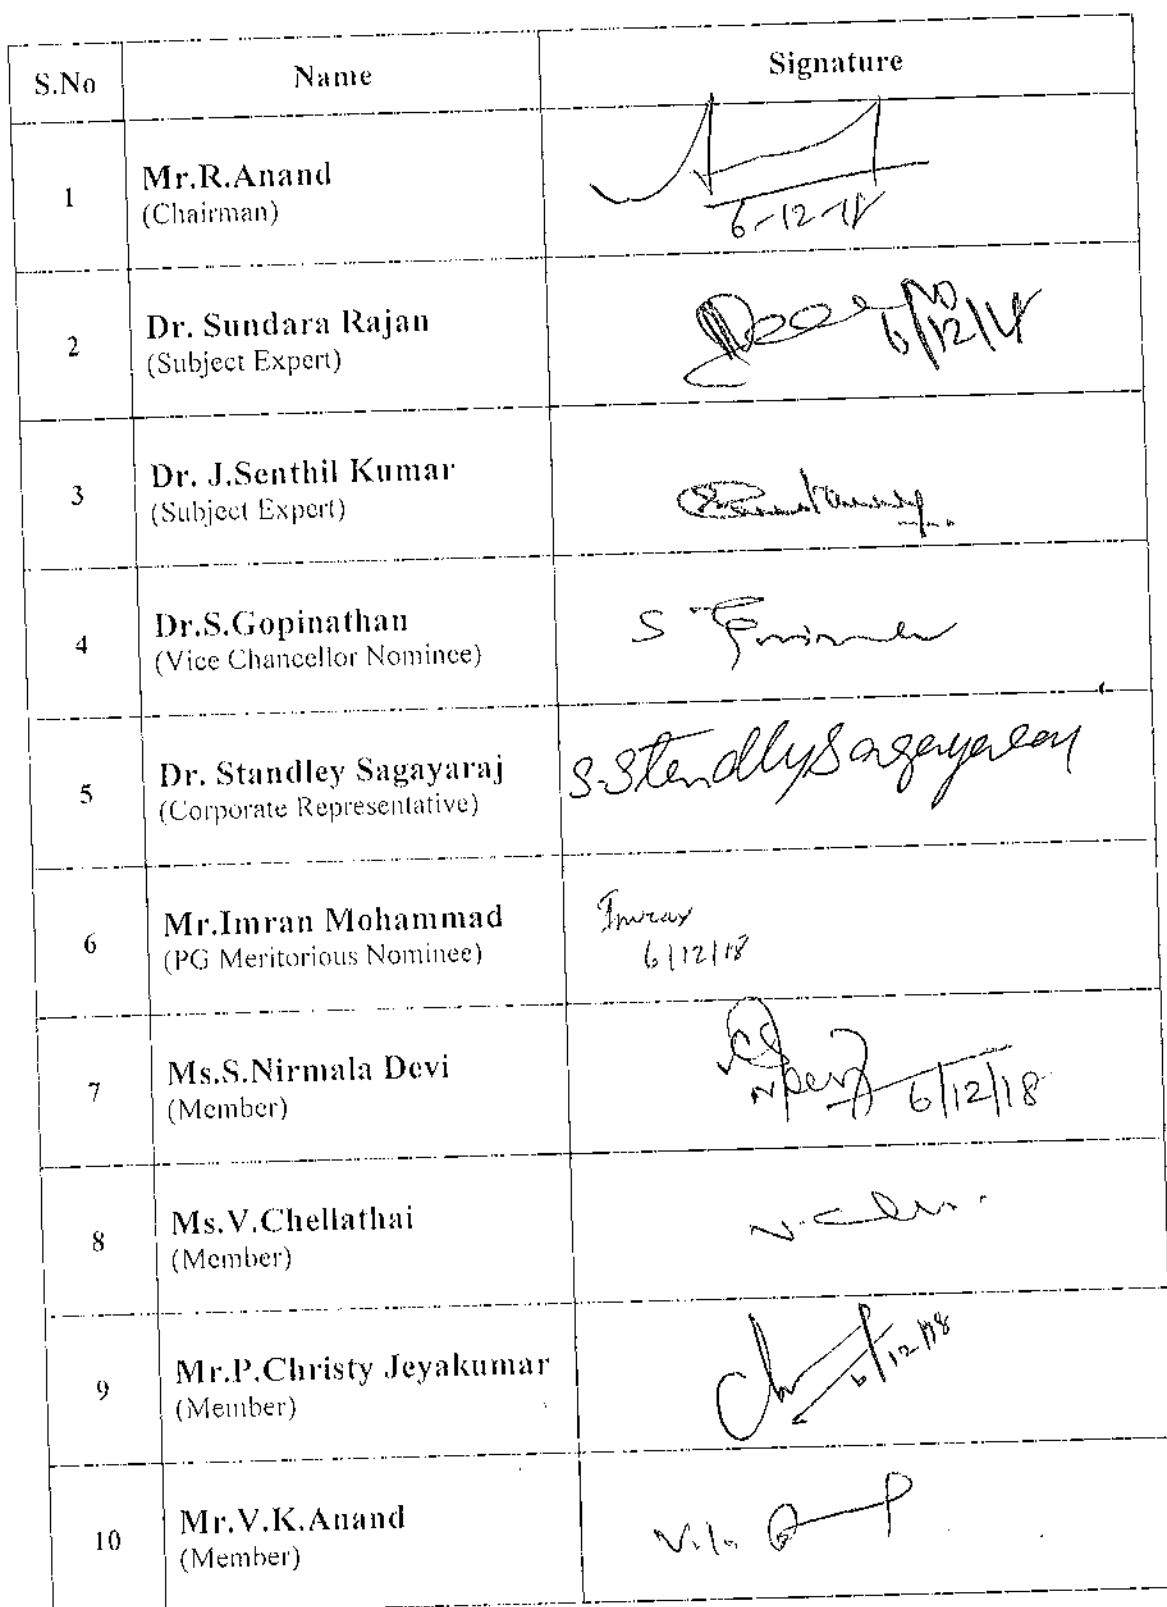 S.No Name Signature
1 Mr.R.Anand
(Chairman)
6-12-18
2 Dr. Sundara Rajan
(Subject Expert)
6/12/18
3 Dr. J.Senthil Kumar
(Subject Expert)
4 Dr.S.Gopinathan
(Vice Chancellor Nominee)
S
5 Dr. Standley Sagayaraj
(Corporate Representative)
S.StandlySagayaraj
6 Mr.Imran Mohammad
(PG Meritorious Nominee)
Imran
6/12/18
7 Ms.S.Nirmala Devi
(Member)
6/12/18
8 Ms.V.Chellathai
(Member)
9 Mr.P.Christy Jeyakumar
(Member)
6/12/18
10 Mr.V.K.Anand
(Member)